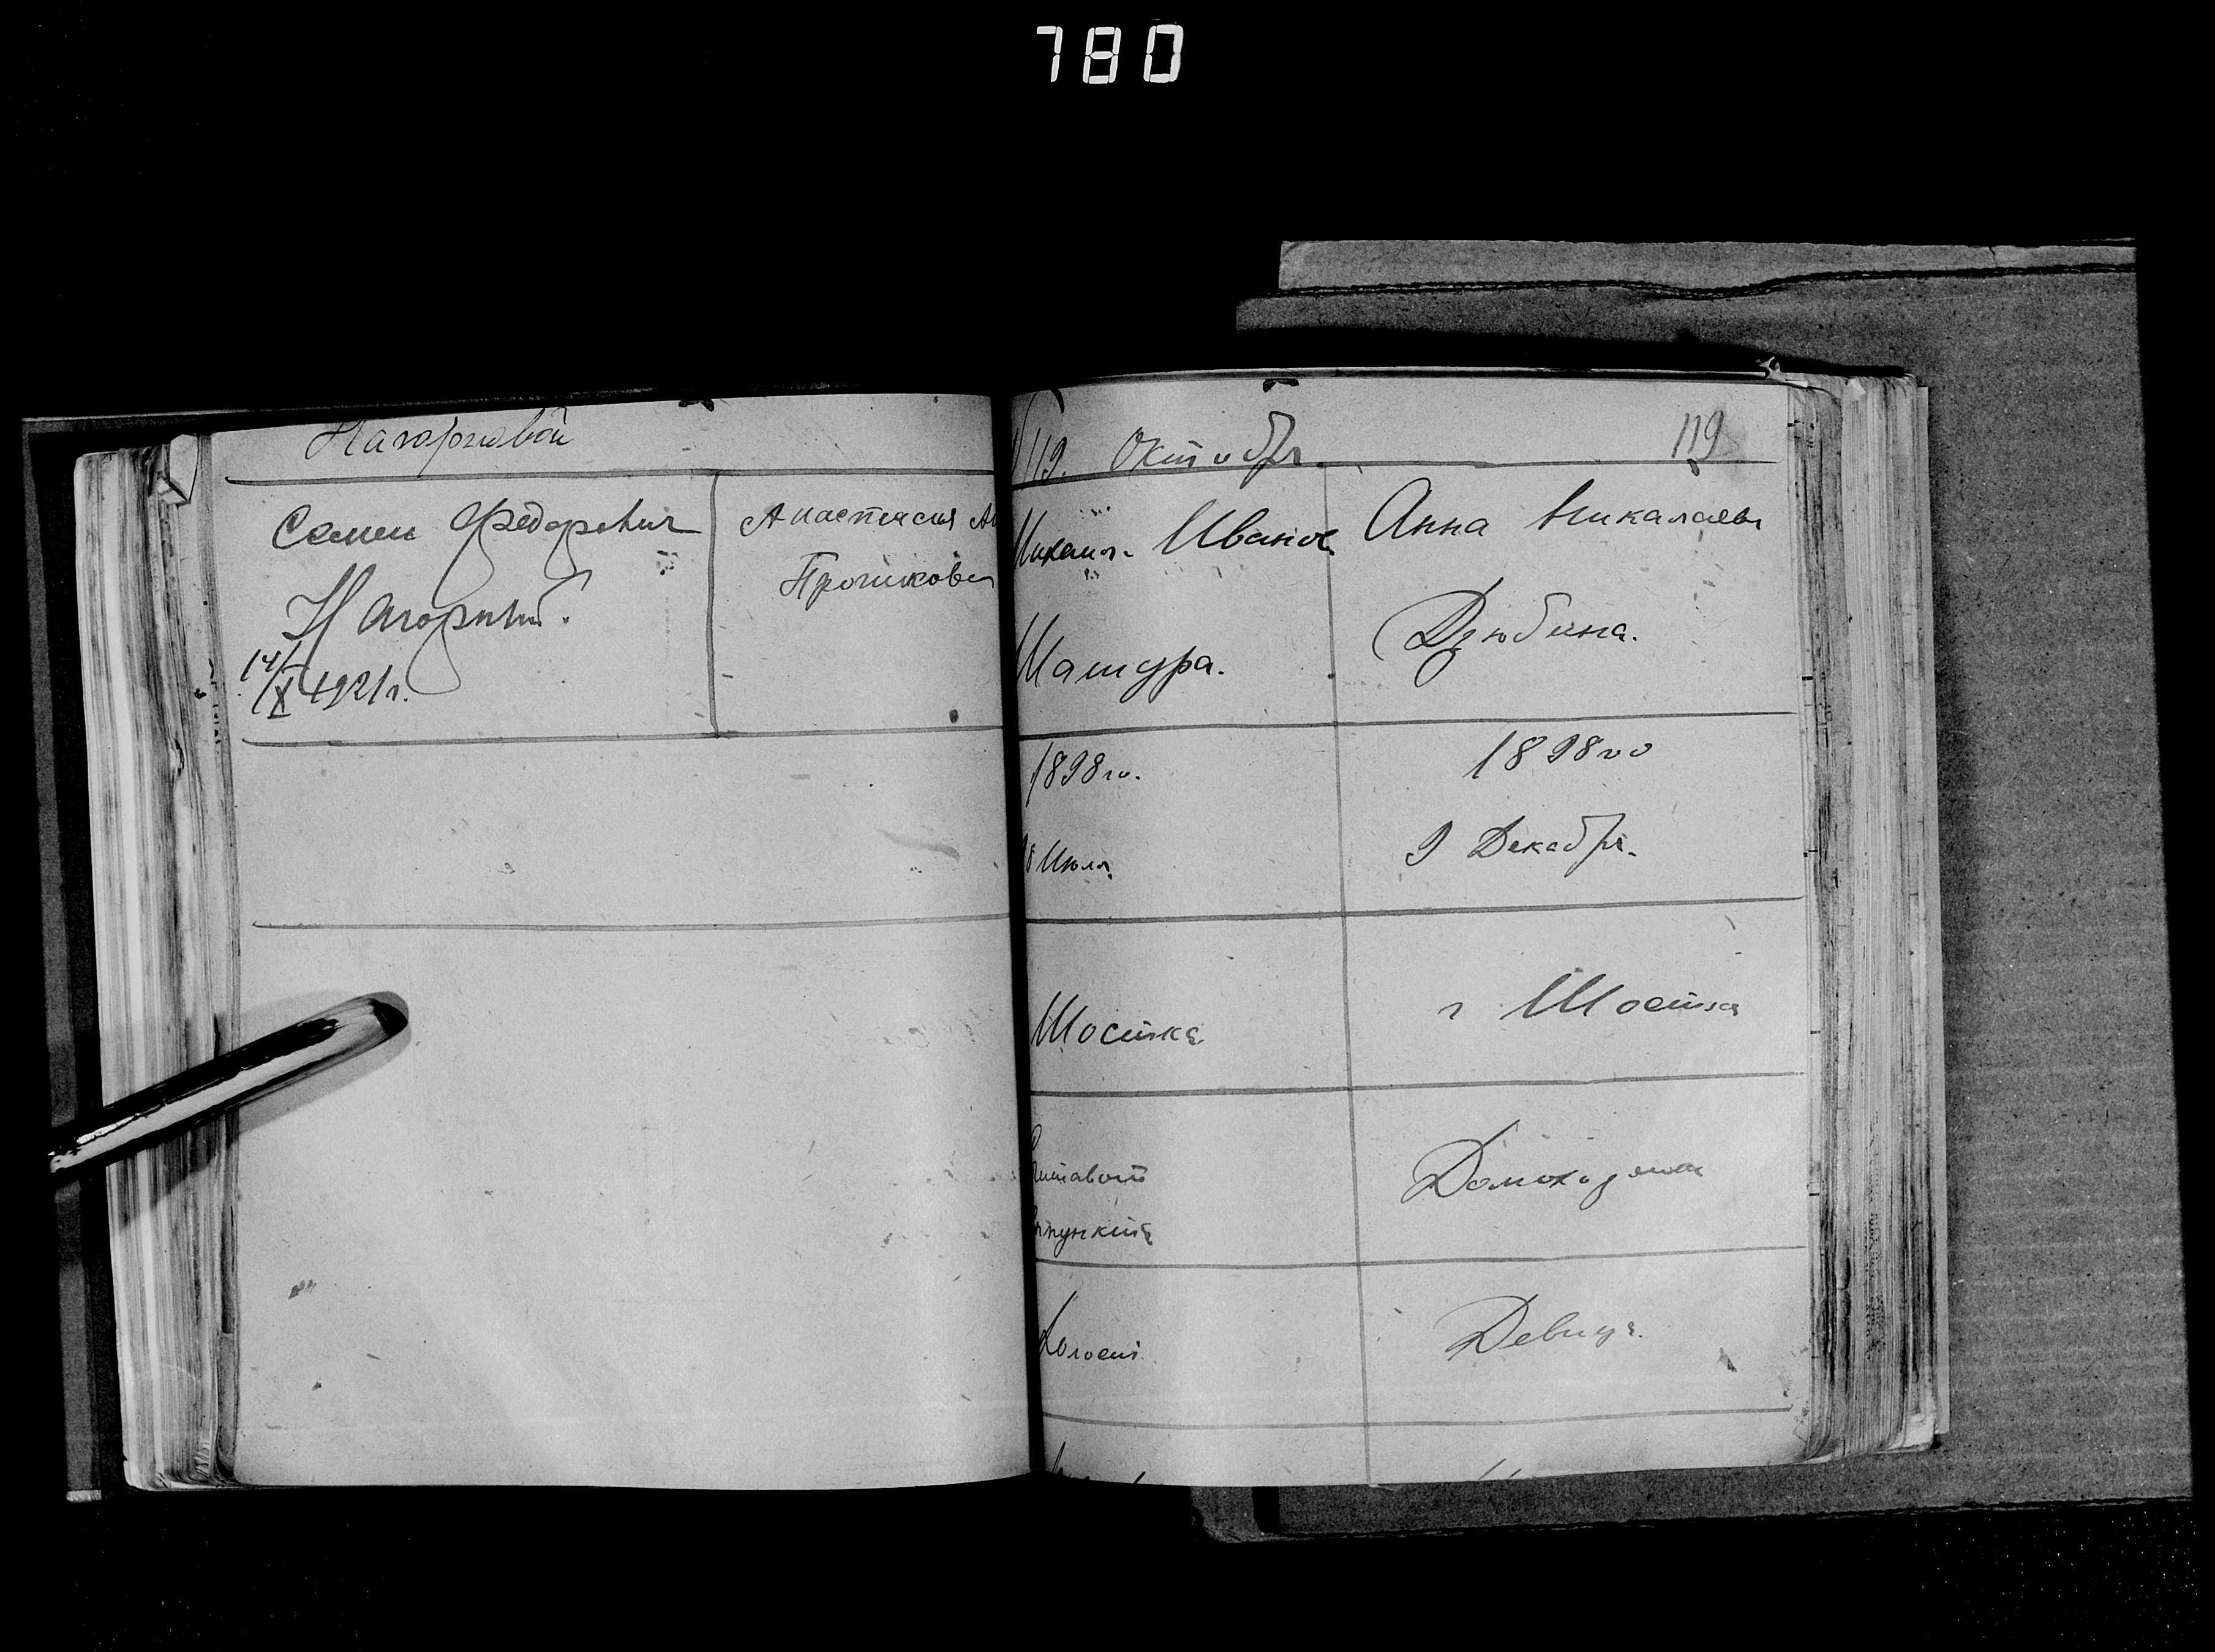 780
Нагорновой
Семен Федорович
Нагорный.
14/X 1921 г.
Анастасия
119. Октября.
119
Михаил Иванов.
Мащура.
Анна Николаевн
Дзюбина.
1898 го.
Июля.
1898 го
9 Декабря.
Шостка
г Шостка
Домохозяйка
Холост
Девица.